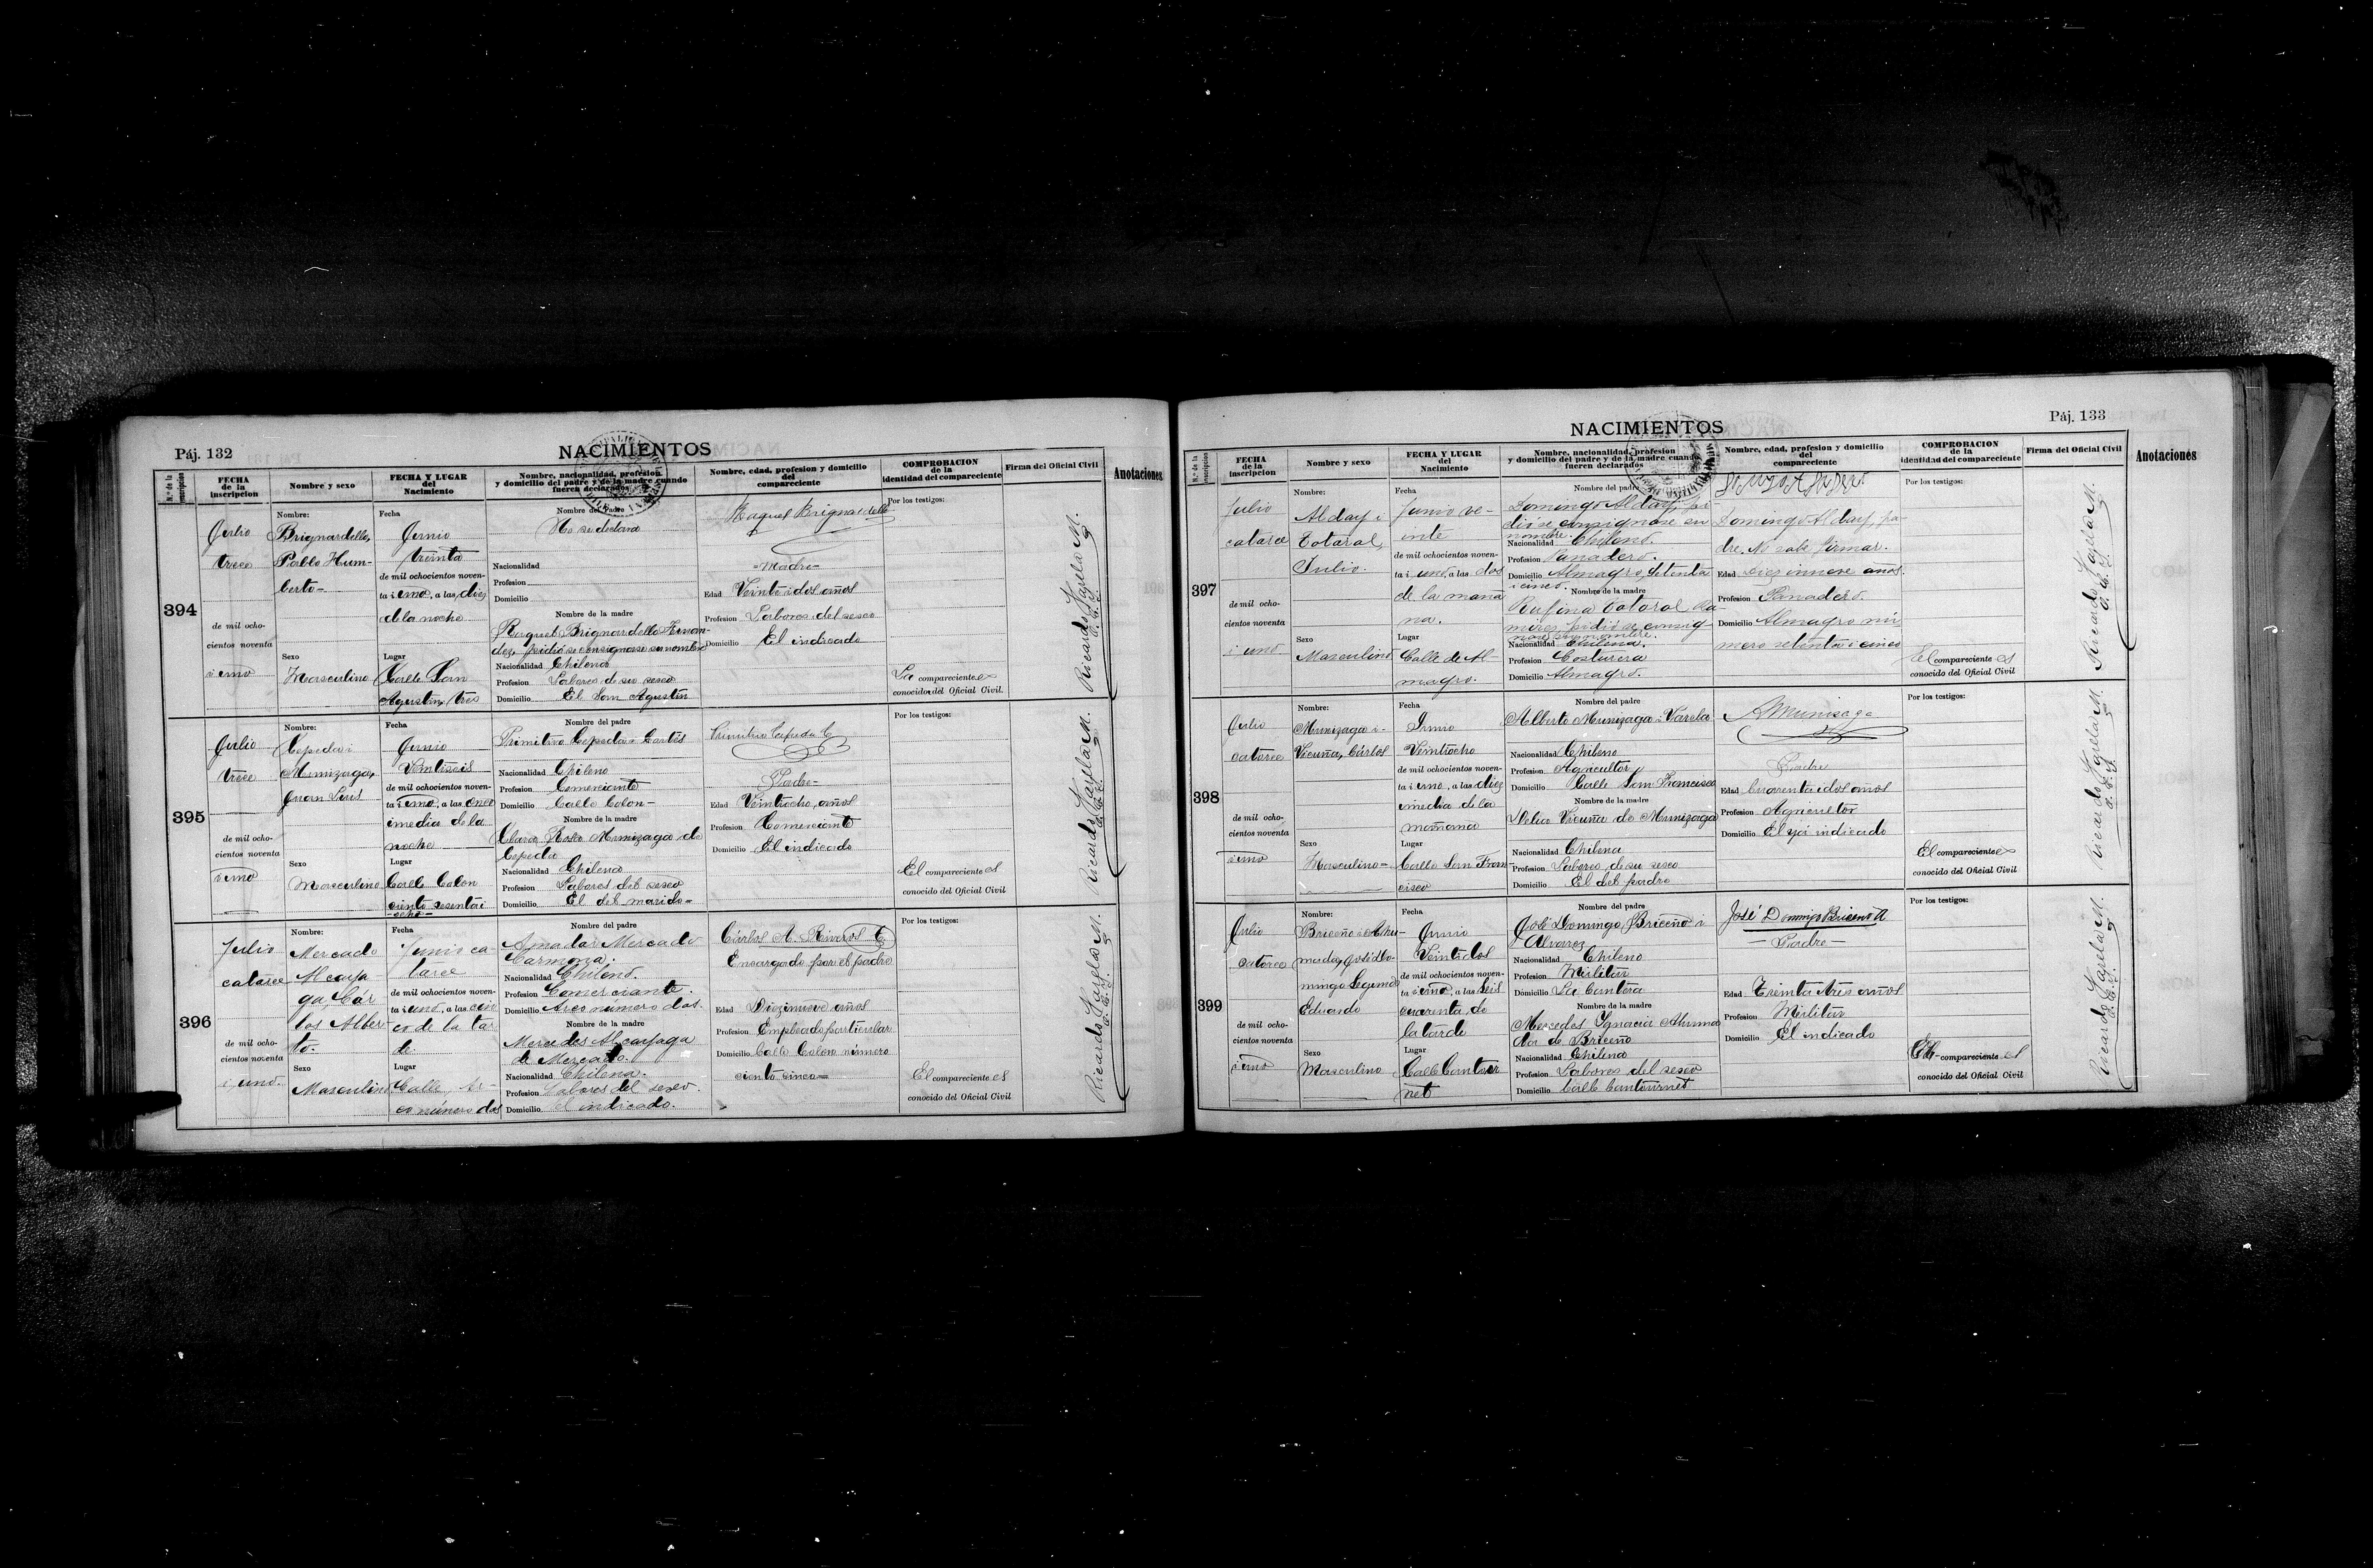 Páj. 132
NACIMIENTOS
N.º de la inscripcion
FECHA de la inscripcion
Nombre y sexo
FECHA Y LUGAR del Nacimiento
Nombre, nacionalidad, profesion y domicilio del padre y de la madre cuando fueren declarados
Nombre, edad, profesion y domicilio del compareciente
COMPROBACION de la identidad del compareciente
Firma del Oficial Civil
Anotaciones
394
Julio
trece
de mil ocho-
cientos noventa
i uno
Nombre:
Brignardello,
Pablo Hum-
berto-
Sexo
Masculino
Fecha
Junio
treinta
de mil ochocientos noven-
ta i uno, a las diez
de la noche
Lugar
Calle San
Agustin, tres
Nombre del Padre
No se declara
Nacionalidad
Profesion
Domicilio
Nombre de la madre
Raquel Brignardello Hernan-
dez, pidió se consignase su nombre
Nacionalidad Chilena
Profesion Labores de su sexo
Domicilio El San Agustin
Raquel Brignardello
-Madre-
Edad Veinte i dos años
Profesion Labores del sexo
Domicilio El indicado
Por los testigos:
La compareciente es
conocida del Oficial Civil
Ricardo Varela M.
O. C. I.
395
Julio
trece
de mil ocho-
cientos noventa
i uno
Nombre:
Cepeda i
Munizaga,
Juan Luis
Sexo
Masculino
Fecha
Junio
Veintiseis
de mil ochocientos noven-
ta i uno, a las once
i media de la
noche
Lugar
Calle Colon
ciento sesenta i
ocho-
Nombre del padre
Primitivo Cepeda i Cortés
Nacionalidad Chileno
Profesion Comerciante
Domicilio Calle Colon-
Nombre de la madre
Clara Rosa Munizaga de
Cepeda
Nacionalidad Chilena
Profesion Labores del sexo
Domicilio El del marido-
Primitivo Cepeda C
-Padre-
Edad Veintiocho años
Profesion Comerciante
Domicilio El indicado
Por los testigos:
El compareciente es
conocido del Oficial Civil
Ricardo Varela M.
O. C. I.
396
Julio
catorce
de mil ocho-
cientos noventa
i uno.
Nombre:
Mercado
Alcaya-
ga, Cár
los Alber
to.
Sexo
Masculino
Fecha
Junio ca
torce
de mil ochocientos noven-
ta i uno, a las cin
co de la tar
de
Lugar
Calle, Ar-
co número dos
Nombre del padre
Amador Mercado
Carmona.
Nacionalidad Chileno.
Profesion Comerciante.
Domicilio Arco número dos.
Nombre de la madre
Mercedes Alcayaga
de Mercado.
Nacionalidad Chilena.
Profesion Labores del sexo.
Domicilio el indicado.
Cárlos A. Riveros C
Encargado por el padre
Edad Diezinueve años
Profesion Empleado particular
Domicilio Calle Colon número
ciento cinco-
Por los testigos:
El compareciente es
conocido del Oficial Civil
Ricardo Varela M.
O. C. I.
Páj. 133
NACIMIENTOS
N.º de la inscripcion
FECHA de la inscripcion
Nombre y sexo
FECHA Y LUGAR del Nacimiento
Nombre, nacionalidad, profesion y domicilio del padre y de la madre cuando fueren declarados
Nombre, edad, profesion y domicilio del compareciente
COMPROBACION de la identidad del compareciente
Firma del Oficial Civil
Anotaciones
397
Julio
catorce
de mil ocho-
cientos noventa
i uno
Nombre:
Alday i
Totoral,
Julio.
Sexo
Masculino
Fecha
Junio ve-
inte
de mil ochocientos noven-
ta i uno, a las dos
de la maña
na.
Lugar
Calle de Al-
magro.
Nombre del padre
Domingo Alday, pi-
dió se consignase su
nombre.
Nacionalidad Chileno.
Profesion Panadero.
Domicilio Almagro, setenta
i cinco.
Nombre de la madre
Rufina Totoral Ra-
mirez, pidió se consig
nase su nombre.
Nacionalidad Chilena.
Profesion Costurera
Domicilio Almagro.
Domingo Alday, pa-
dre. No sabe firmar.
Edad Diez i nueve años.
Profesion Panadero.
Domicilio Almagro nú
mero setenta i cinco
Por los testigos:
El compareciente es
conocido del Oficial Civil
Ricardo Varela M.
O. C. I.
398
Julio
catorce
de mil ocho-
cientos noventa
i uno
Nombre:
Munizaga i-
Vicuña, Cárlos
Sexo
Masculino-
Fecha
Junio
Veintiocho
de mil ochocientos noven-
ta i uno, a las diez
i media de la
mañana
Lugar
Calle San Fran-
cisco
Nombre del padre
Alberto Munizaga i Varela
Nacionalidad Chileno
Profesion Agricultor
Domicilio Calle San Francisco
Nombre de la madre
Delia Vicuña de Munizaga
Nacionalidad Chilena
Profesion Labores de su sexo
Domicilio El del padre
A Munizaga
Padre
Edad Cuarenta i dos años
Profesion Agricultor
Domicilio El ya indicado
Por los testigos:
El compareciente es
conocido del Oficial Civil
Ricardo Varela M.
O. C. I.
399
Julio
catorce
de mil ocho-
cientos noventa
i uno
Nombre:
Briceño i Ahu-
mada, José Do-
mingo Segundo
Eduardo
Sexo
Masculino
Fecha
Junio
Veintidos
de mil ochocientos noven-
ta i uno, a las seis
cuarenta de
la tarde
Lugar
Calle Cantour
net
Nombre del padre
José Domingo Briceño i
Alvarez
Nacionalidad Chileno
Profesion Militar
Domicilio La Cantera
Nombre de la madre
Mercedes Ygnacia Ahuma
da de Briceño
Nacionalidad Chilena
Profesion Labores del sexo
Domicilio Calle Cantournet
José Domingo Briceño A
-Padre-
Edad Treinta i tres años
Profesion Militar
Domicilio El indicado
Por los testigos:
El compareciente es
conocido del Oficial Civil
Ricardo Varela M.
O. C. I.